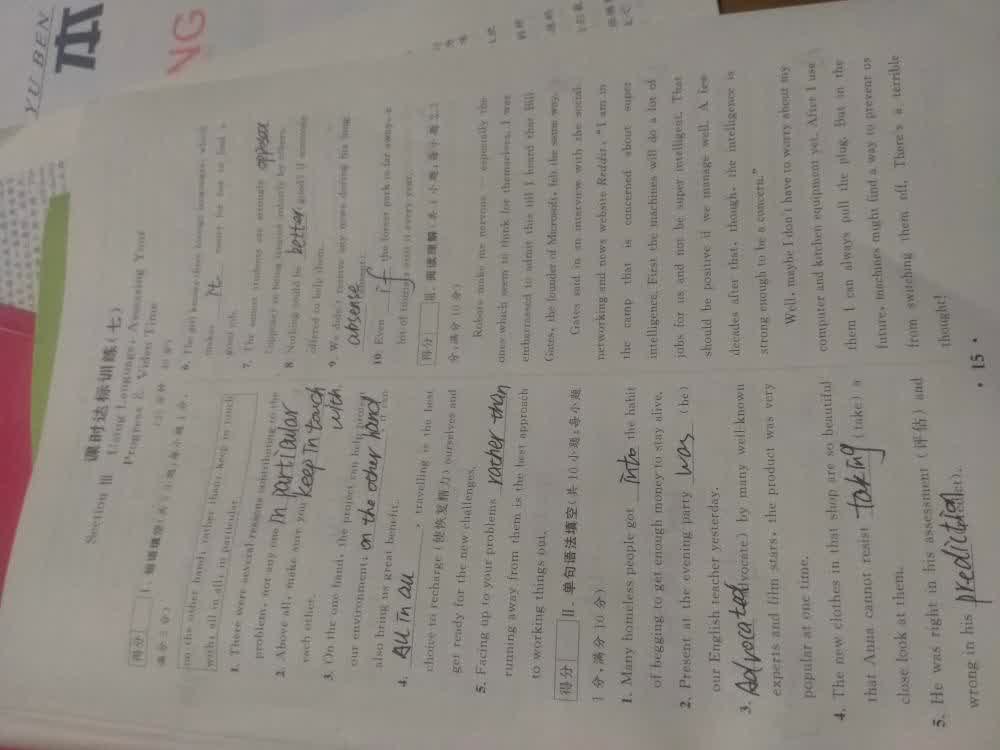 YU BEN
本
NG
Section Ⅲ 课时达标训练(七)
Using Language, Assessing Your
Progress & Video Time
得分
Ⅰ. 短语填空(共5小题;每小题1分,
满分5分)
on the other hand, rather than, keep in touch
with, all in all, in particular
1. There were several reasons contributing to the
problem, not any one in particular
2. Above all, make sure you keep in touch with
each other.
3. On the one hand, the project can help
our environment; on the other hand, it can
also bring us great benefit.
4. All in all, travelling is the best
choice to recharge (使恢复精力) ourselves and
get ready for the new challenges.
5. Facing up to your problems rather than
running away from them is the best approach
to working things out.
得分
Ⅱ. 单句语法填空(共10小题;每小题
1分,满分10分)
1. Many homeless people got into the habit
of begging to get enough money to stay alive.
2. Present at the evening party was (be)
our English teacher yesterday.
3. Advocated (advocate) by many well-known
experts and film stars, the product was very
popular at one time.
4. The new clothes in that shop are so beautiful
that Anna cannot resist taking (take) a
close look at them.
5. He was right in his assessment (评估) and
wrong in his prediction
6. The girl knows three foreign languages, which
makes it easier for her to find a
good job.
7. The senior students are strongly opposed
(oppose) to being treated unfairly by others.
8. Nothing could be better (good) if someone
offered to help them.
9. We didn't receive any news during his long
absense
10. Even if the forest park is far away, a
lot of tourists visit it every year.
得分
Ⅲ. 阅读理解(共4小题;每小题2.5
分,满分10分)
Robots make me nervous — especially the
ones which seem to think for themselves. I was
embarrassed to admit this till I heard that Bill
Gates, the founder of Microsoft, felt the same way.
Gates said in an interview with the social
networking and news website Reddit, "I am in
the camp that is concerned about super
intelligence. First the machines will do a lot of
jobs for us and not be super intelligent. That
should be positive if we manage well. A few
decades after that, though, the intelligence is
strong enough to be a concern."
Well, maybe I don't have to worry about my
computer and kitchen equipment yet. After I use
them I can always pull the plug. But in the
future, machines might find a way to prevent us
from switching them off. There's a terrible
thought!
· 15 ·